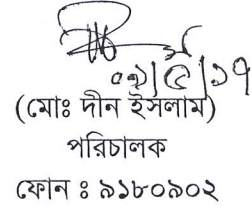 ০৯/৫/১৭
(মোঃ দীন ইসলাম)
পরিচালক
ফোন : ৯১৮০৯০২